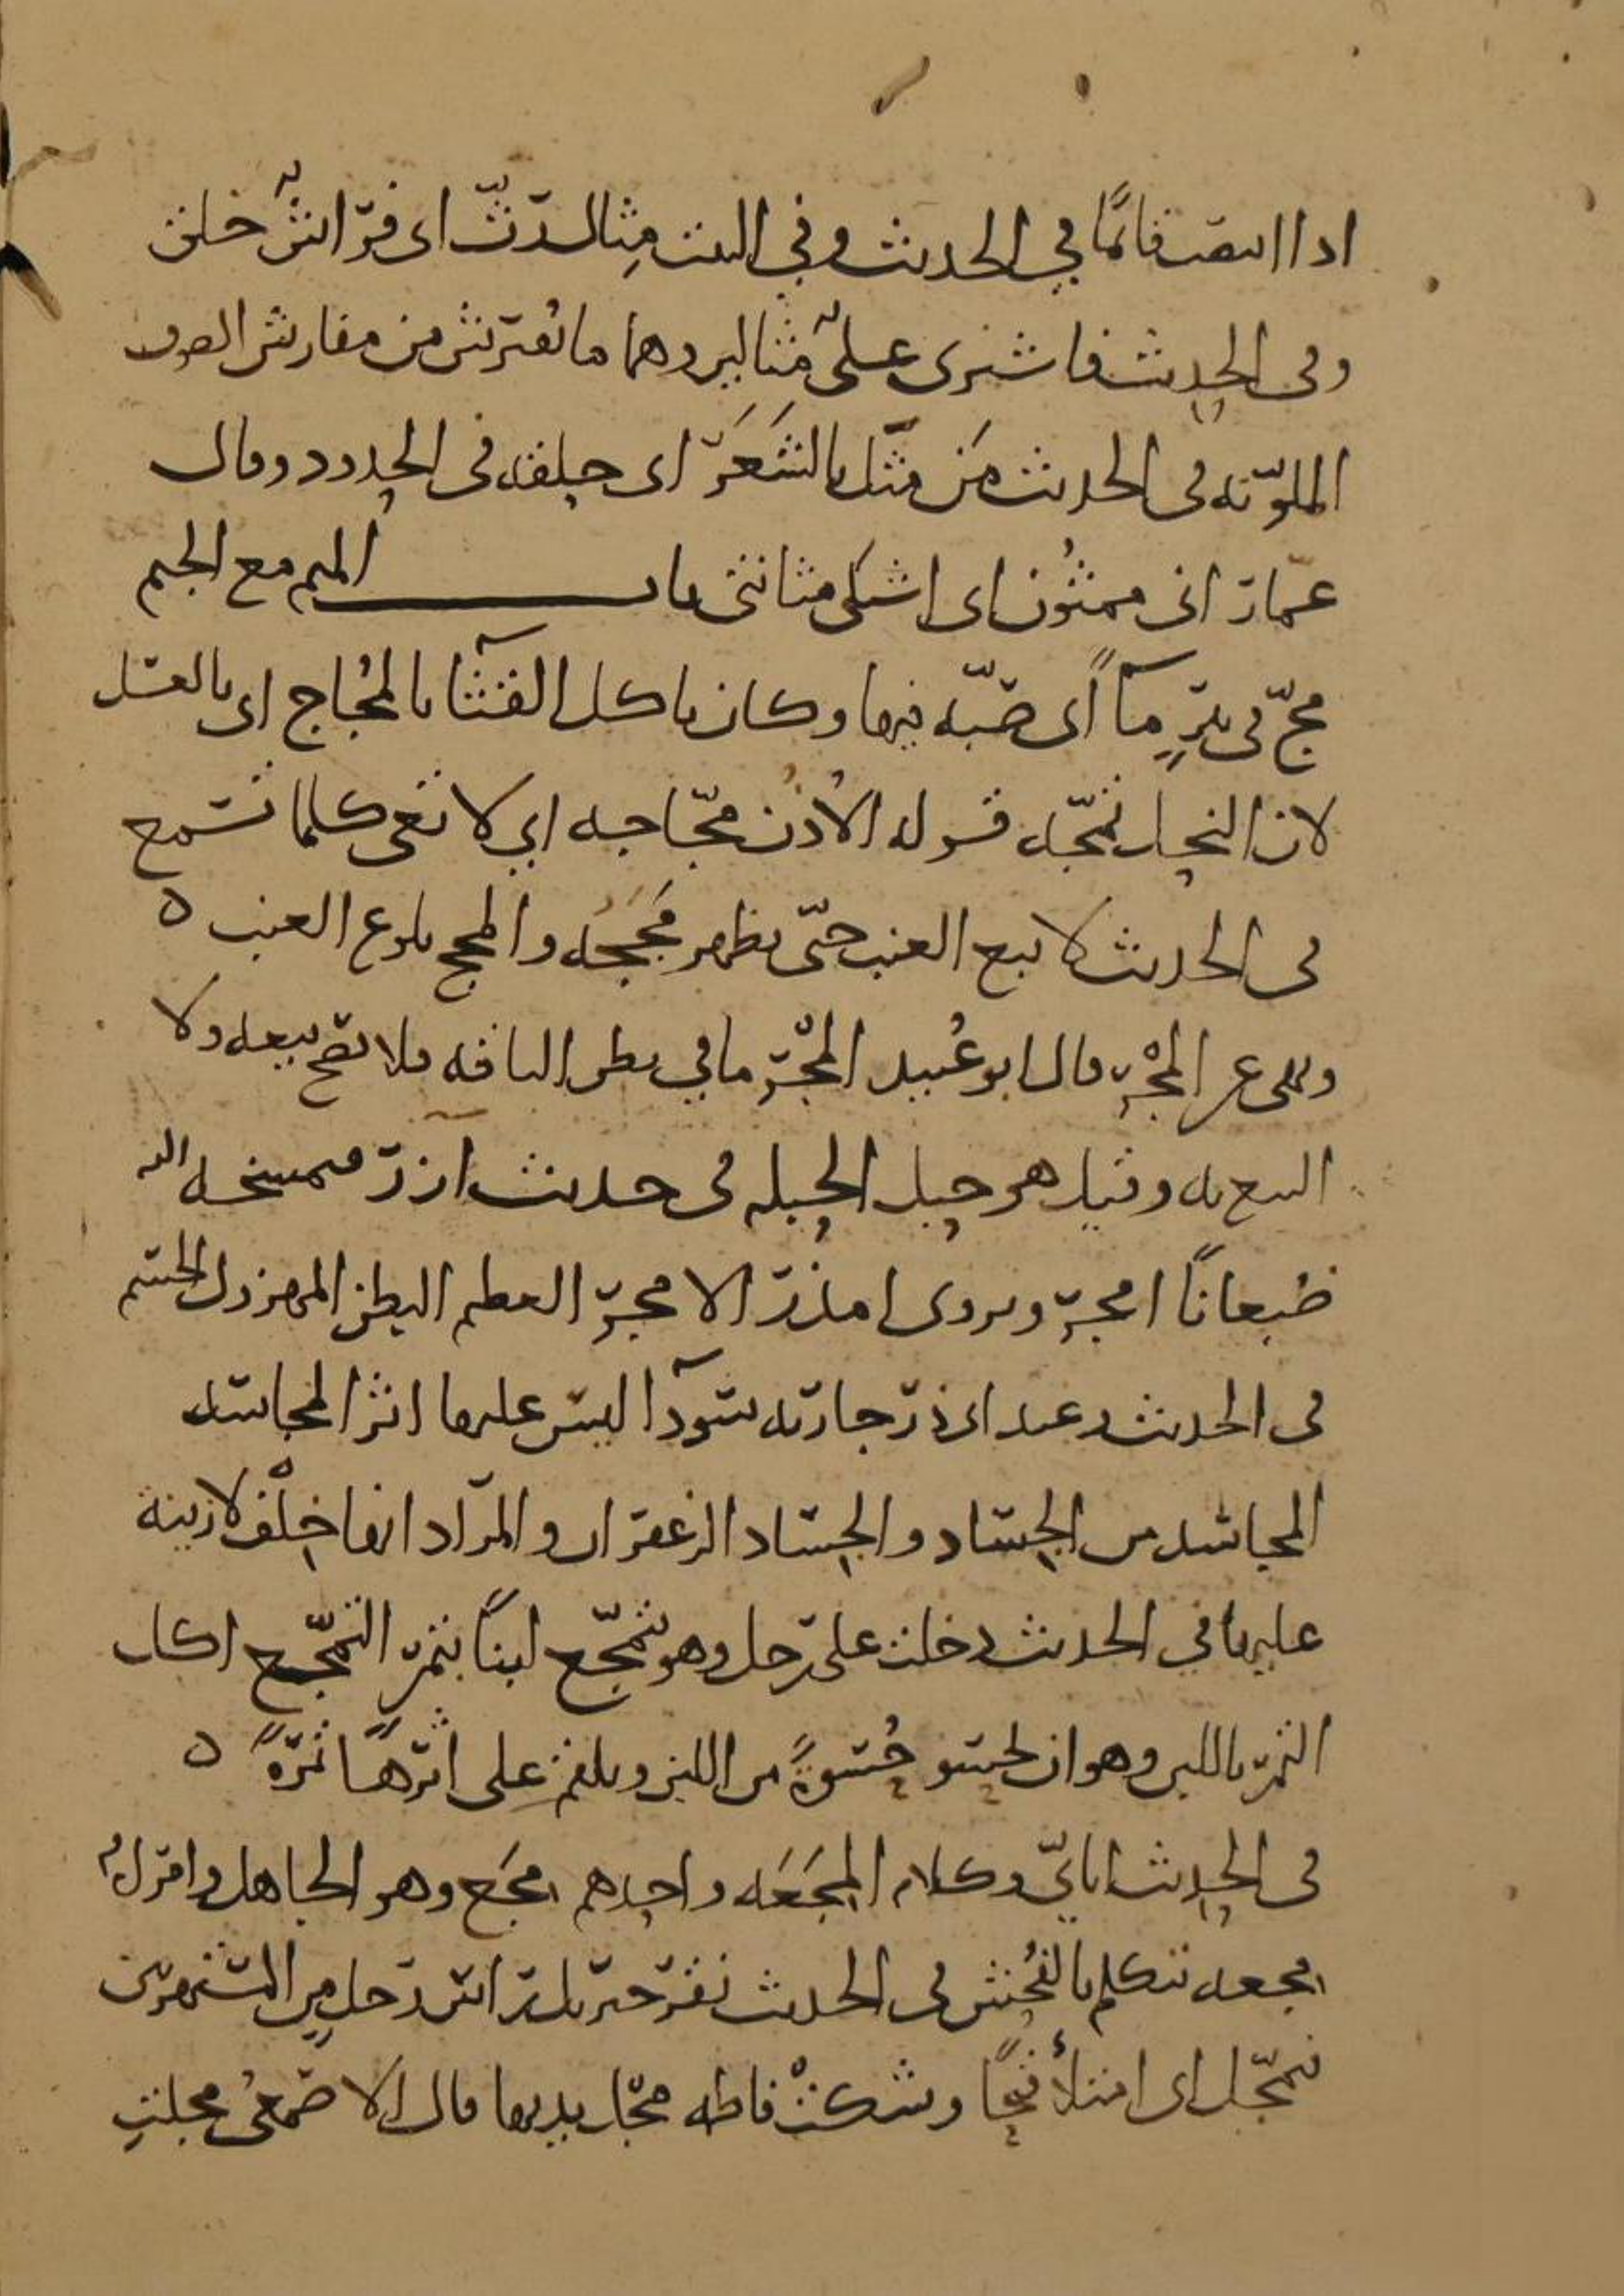 اذا انتصب قائمًا في الحديث وفي البيت مِثال رَثّ اي فِراش خَلَق
وفي الحديث فاشترى علىّ مثالين وهما ما يُفترش من مفارش الصوف
الملوّنه في الحديث مَن مَثَّل بالشَعَر اي حلقه في الحدود وقال
عمّار اني ممثُون اي اشتكي مثانتي باب الميم مع الجيم
مجّ في بئرٍ مآءً اى صَبّه فيها وكان ياكل القثآء بالمُجاج اي بالعسل
لان النحل تمجّه قوله الاذن مجّاجه اي لا تعي كلما تسمع
في الحديث لا تبع العنب حتّى يظهر مَجَجُه والمجج بلوغ العنب ه
ونهى عن المجْر قال ابو عُبيد المجْر ما في بطن الناقه فلا يصح بيعه ولا
البيع به وقيل هو حبل الحبله في حديث ازر فمسخه الله
ضِبعانًا امجر ويروى امذر الامجر العظيم البطن المهزول الجسم
في الحديث وعند ابي ذر جاريه سوآدا ليس عليها اثر المجاسد
المجاسد من الجِساد والجِساد الزعفران والمراد انها خِلْفٌ لا زينة
عليها في الحديث دخلت على رجل وهو يتمجّع لبنًا بتمرٍ التمجّع اكل
التمر باللبن وهو ان يحسو حُسوةً من اللبن ويلقم على اثرها تمرةً ه
في الحديث ايايّ وكلام المِجَعَه واحدهم مجع وهو الجاهل وامراة
مجعه تتكلم بالفُحش في الحديث نقر جبريل راس رجل مِن المستهزين
فتمجّل اى امتلأ قيحًا وشكتْ فاطمه مجَل يديها قال الاصمعي مجلت